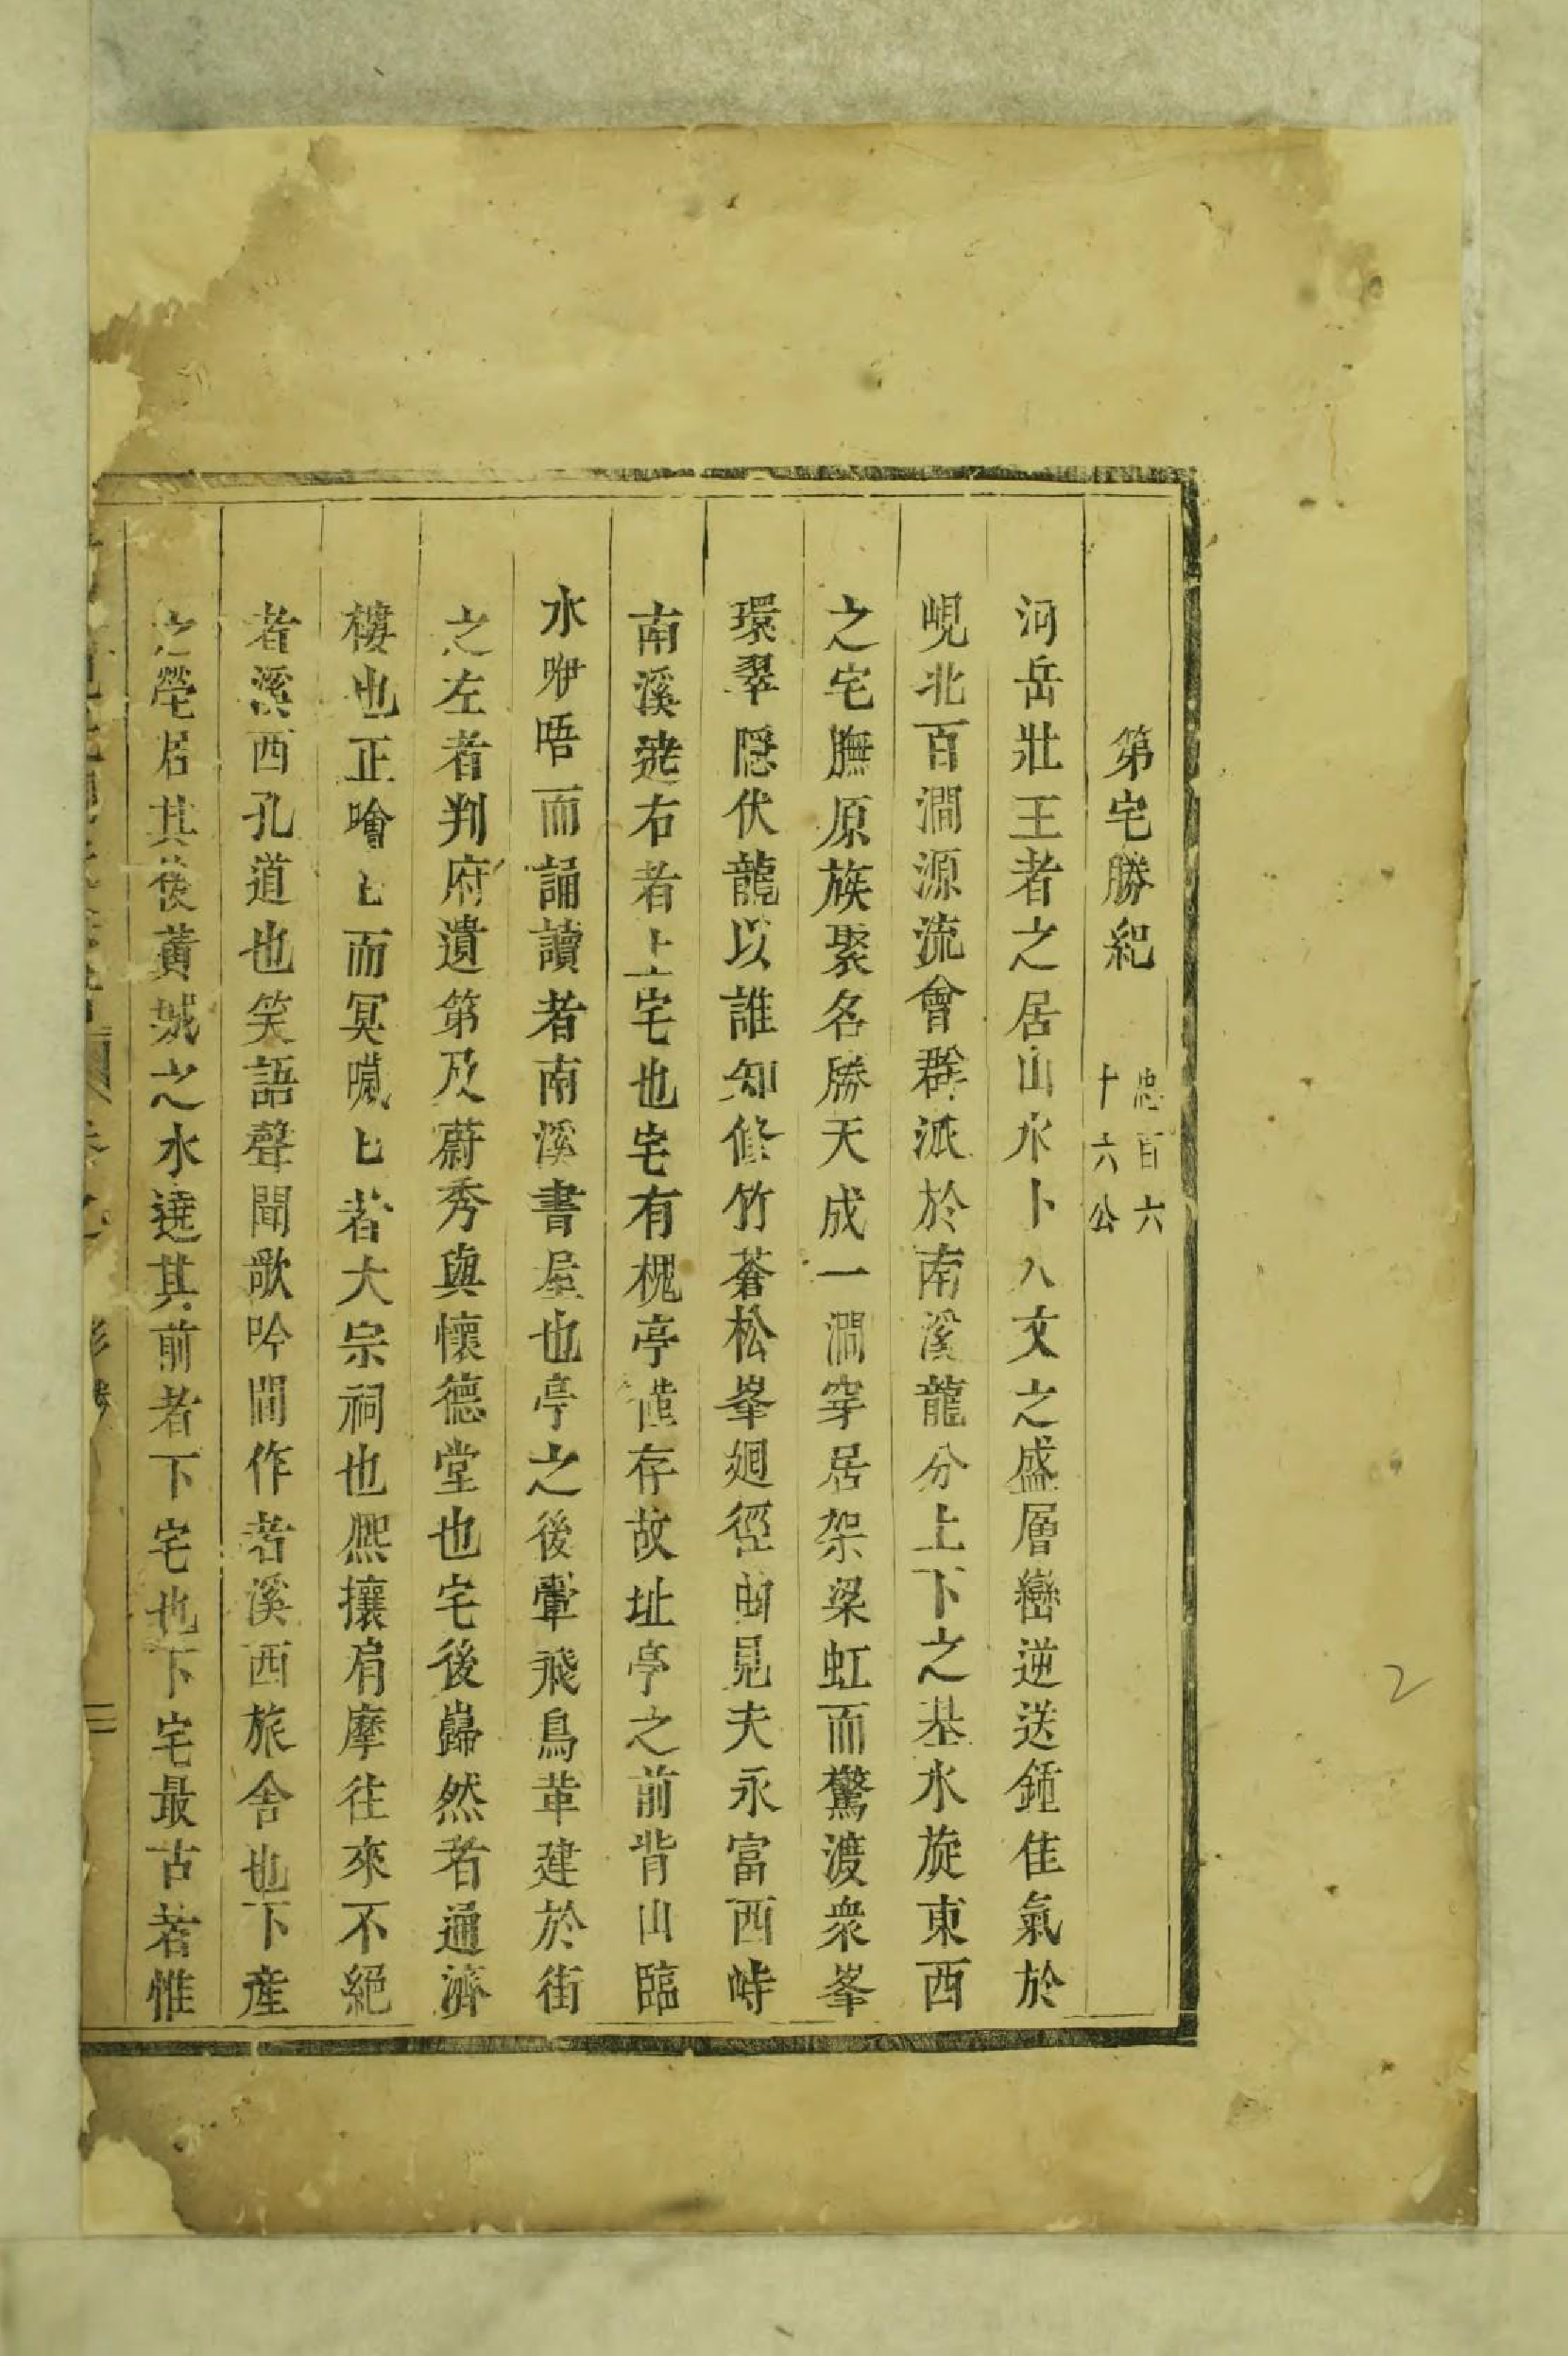 第宅勝紀 忠百六十六公
河岳壯王者之居山水卜人文之盛層巒逆送鍾佳氣於
峴北百澗源流會群派於南溪龍分上下之基水旋東西
之宅膴原族聚名勝天成一澗穿居架梁虹而驚渡衆峯
環翠隠伏龍以誰知修竹蒼松峯廻徑曲見夫永富西峙
南溪遶右者上宅也宅有槐亭僅存故址亭之前背山臨
水咿唔而誦讀者南溪書屋也亭之後翬飛鳥革建於街
之左者判府遺第及蔚秀與懷德堂也宅後巋然者通濟
樓也正噲匕而冥噦匕者大宗祠也熈攘肩摩往來不絕
者溪西孔道也笑語聲聞歌吟間作者溪西旅舍也下産
之塋居其後黄城之水遶其前者下宅也下宅最古者惟